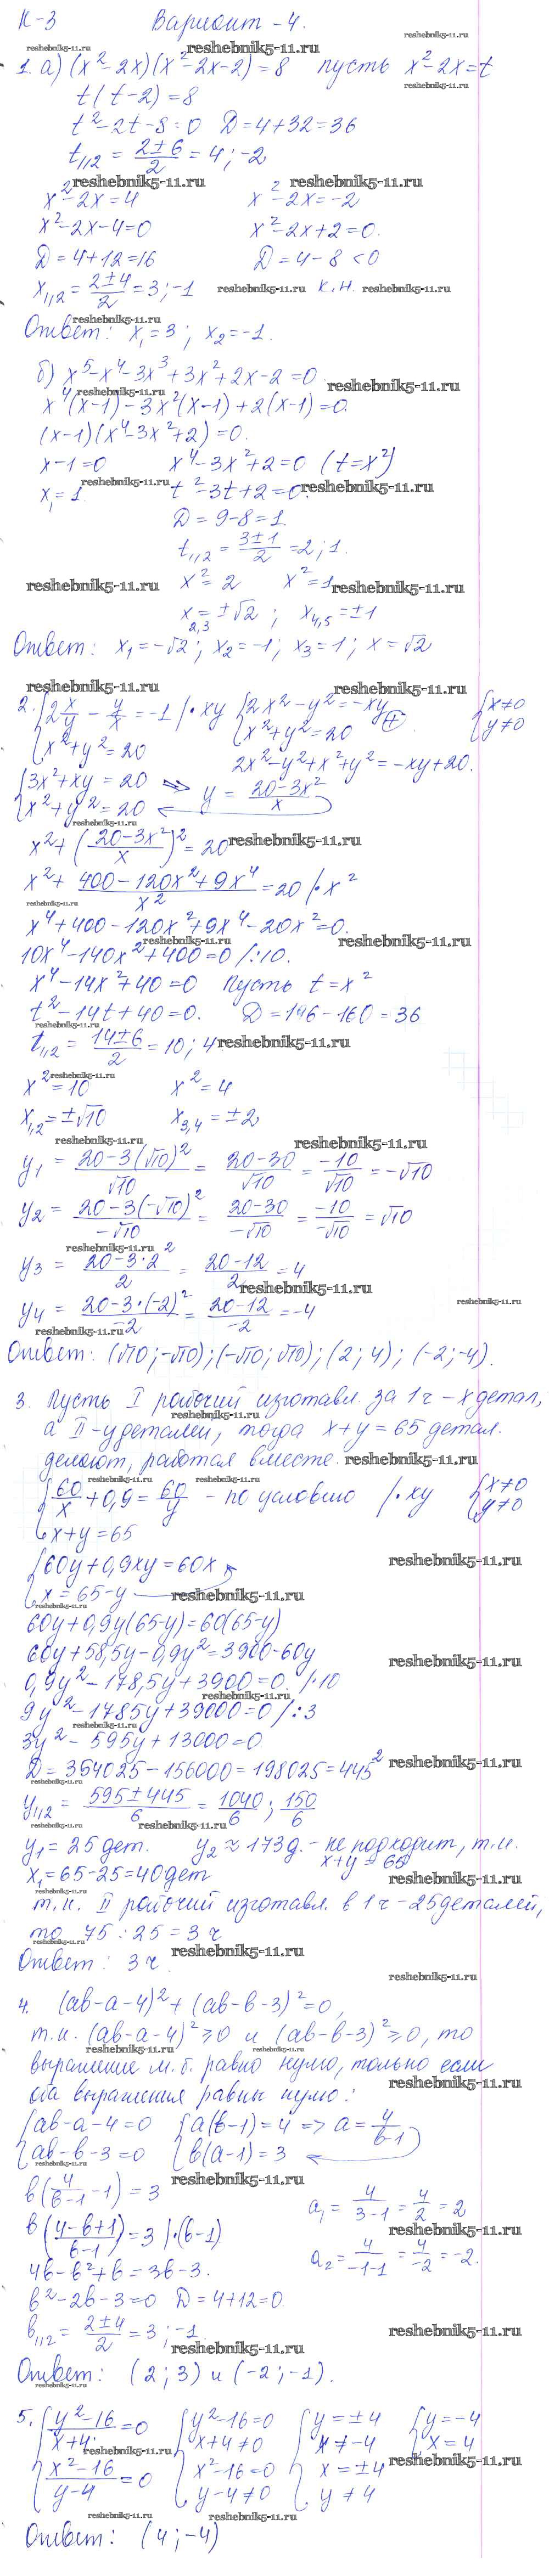 К-3 Вариант-4.
1. а) (x²-2x)(x²-2x-2)=8 пусть x²-2x=t
t(t-2)=8
t²-2t-8=0 D=4+32=36
t₁,₂ = (2±6)/2 = 4; -2
x²-2x=4 x²-2x=-2
x²-2x-4=0 x²-2x+2=0.
D=4+12=16 D=4-8<0
x₁,₂ = (2±4)/2 = 3; -1 к.н.
Ответ: x₁=3; x₂=-1.
б) x⁵-x⁴-3x³+3x²+2x-2=0
x⁴(x-1)-3x²(x-1)+2(x-1)=0.
(x-1)(x⁴-3x²+2)=0.
x-1=0 x⁴-3x²+2=0 (t=x²)
x₁=1. t²-3t+2=0.
D=9-8=1.
t₁,₂ = (3±1)/2 = 2; 1.
x²=2 x²=1
x₂,₃=±√2; x₄,₅=±1
Ответ: x₁=-√2; x₂=-1; x₃=1; x=√2
2. {2x/y - y/x = -1 |·xy {2x²-y²=-xy {x≠0
{x²+y²=20 {x²+y²=20 (+) {y≠0
2x²-y²+x²+y²=-xy+20.
{3x²+xy=20 => y = (20-3x²)/x
{x²+y²=20
x²+((20-3x²)/x)²=20
x²+(400-120x²+9x⁴)/x²=20 |·x²
x⁴+400-120x²+9x⁴-20x²=0.
10x⁴-140x²+400=0 |:10.
x⁴-14x²+40=0 пусть t=x²
t²-14t+40=0. D=196-160=36
t₁,₂ = (14±6)/2 = 10; 4
x²=10 x²=4
x₁,₂=±√10 x₃,₄=±2
y₁ = (20-3(√10)²)/√10 = (20-30)/√10 = -10/√10 = -√10
y₂ = (20-3(-√10)²)/-√10 = (20-30)/-√10 = -10/-√10 = √10
y₃ = (20-3·2²)/2 = (20-12)/2 = 4
y₄ = (20-3·(-2)²)/-2 = (20-12)/-2 = -4
Ответ: (√10;-√10); (-√10;√10); (2;4); (-2;-4).
3. Пусть I рабочий изготавл. за 1ч - x детал,
а II - y деталей, тогда x+y=65 детал.
делают, работая вместе.
{60/x+0,9=60/y - по условию |·xy {x≠0
{x+y=65 {y≠0
{60y+0,9xy=60x
{x=65-y
60y+0,9y(65-y)=60(65-y)
60y+58,5y-0,9y²=3900-60y
0,9y²-178,5y+3900=0. |·10
9y²-1785y+39000=0 |:3
3y²-595y+13000=0
D=354025-156000=198025=445²
y₁,₂ = (595±445)/6 = 1040/6; 150/6
y₁=25 дет. y₂≈173д. - не подходит, т.к.
x₁=65-25=40дет x+y=65
т.к. II рабочий изготавл. в 1ч - 25деталей,
то 75:25=3ч
Ответ: 3ч.
4. (ab-a-4)²+(ab-b-3)²=0,
т.к. (ab-a-4)²≥0 и (ab-b-3)²≥0, то
выражение м.б. равно нулю, только если
оба выражения равны нулю:
{ab-a-4=0 {a(b-1)=4 => a=4/(b-1)
{ab-b-3=0 {b(a-1)=3
b(4/(b-1)-1)=3 a₁ = 4/(3-1) = 4/2 = 2
b((4-b+1)/(b-1))=3 |·(b-1)
4b-b²+b=3b-3. a₂ = 4/(-1-1) = 4/-2 = -2.
b²-2b-3=0 D=4+12=0
b₁,₂ = (2±4)/2 = 3; -1.
Ответ: (2;3) и (-2;-1).
5. {(y²-16)/(x+4)=0 {y²-16=0 {y=±4 {y=-4
{x+4≠0 {x≠-4 {x=4
{(x²-16)/(y-4)=0 {x²-16=0 {x=±4
{y-4≠0 {y≠4
Ответ: (4;-4)
reshebnik5-11.ru